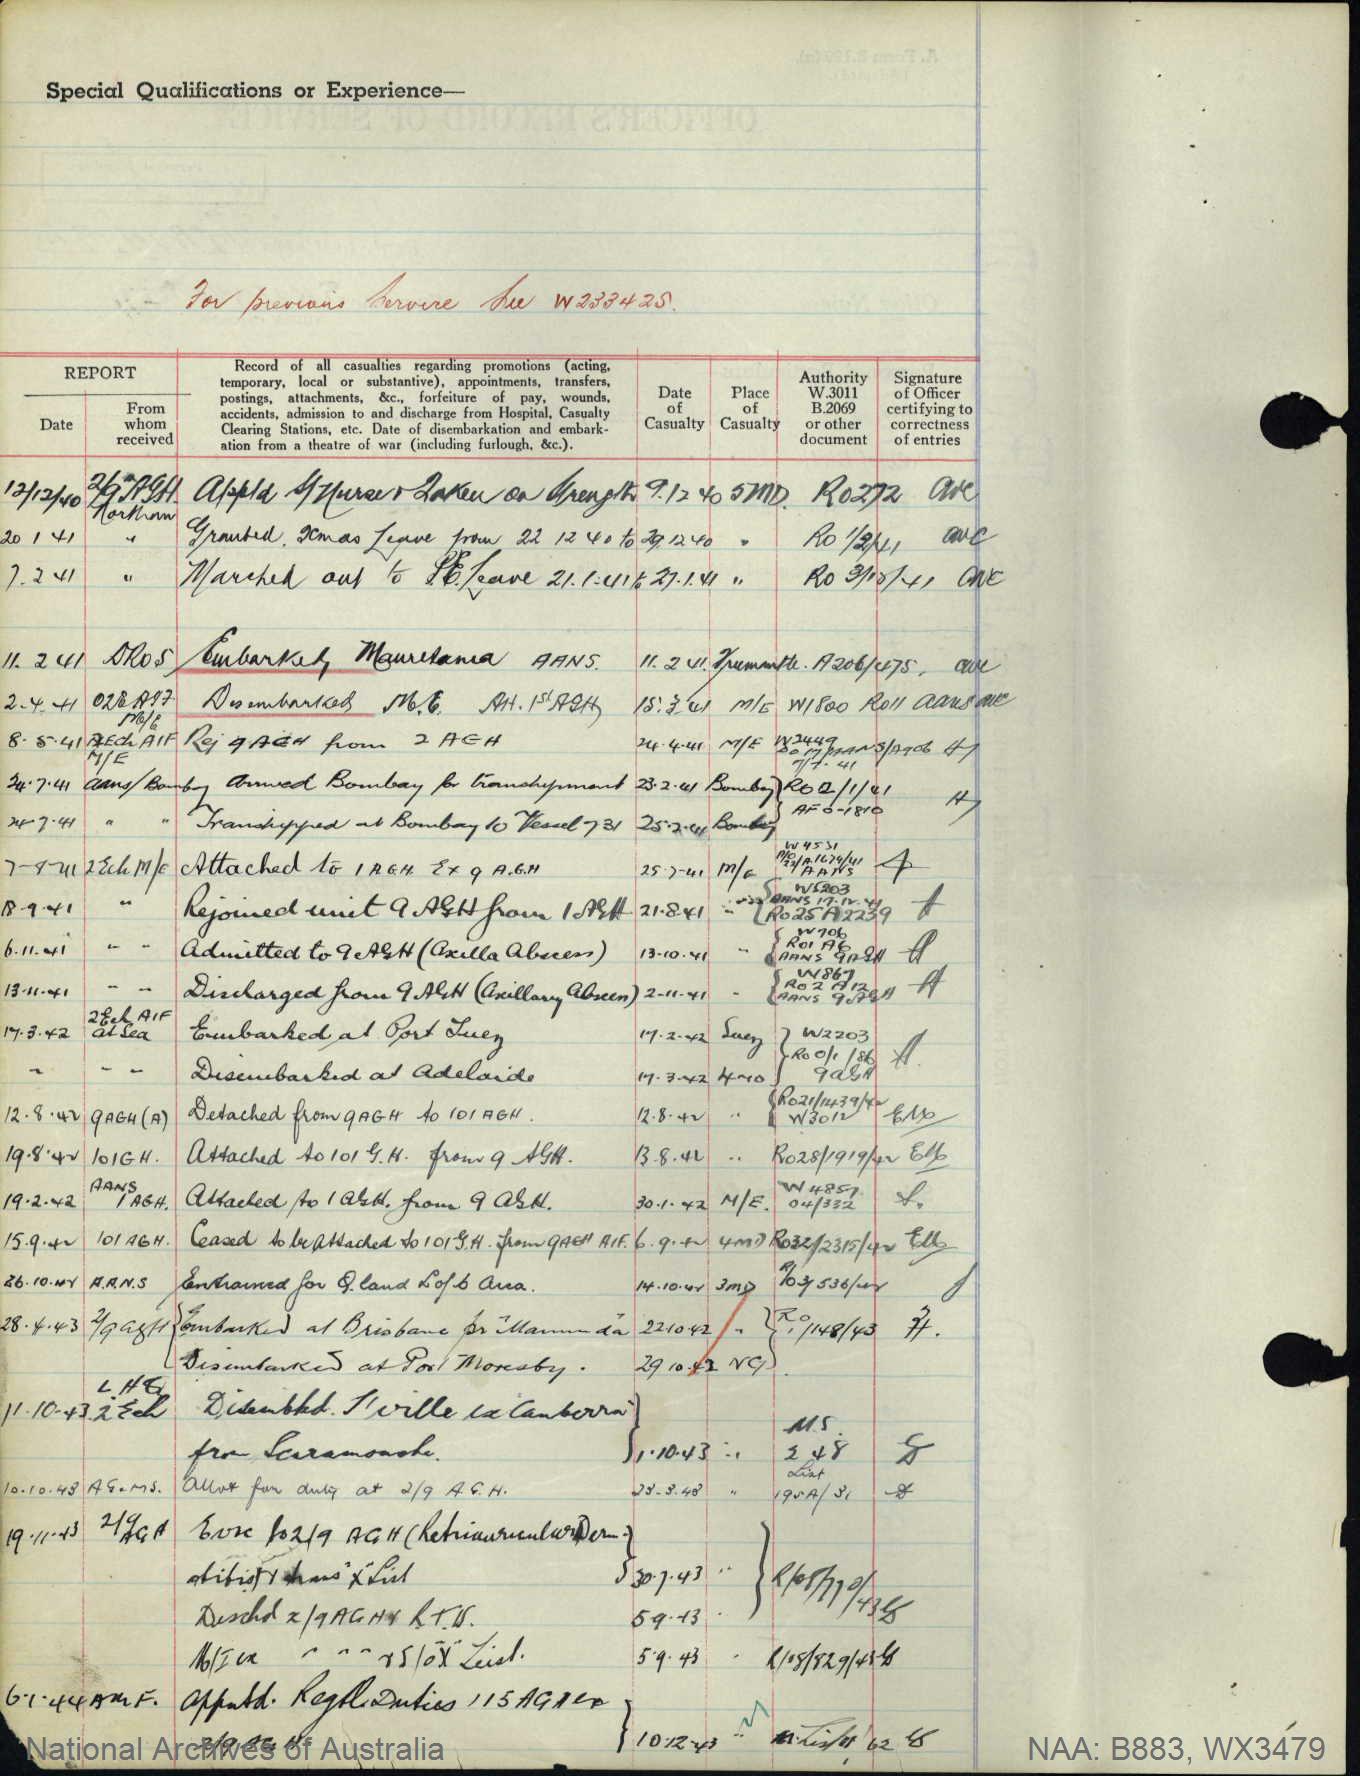 Special Qualifications or Experience—
For previous Service See W233425.
REPORT
Date
From whom received
Record of all casualties regarding promotions (acting,
temporary, local or substantive), appointments, transfers,
postings, attachments, &c., forfeiture of pay, wounds,
accidents, admission to and discharge from Hospital, Casualty
Clearing Stations, etc. Date of disembarkation and embark-
ation from a theatre of war (including furlough, &c.).
Date of Casualty
Place of Casualty
Authority W.3011 B.2069 or other document
Signature of Officer certifying to correctness of entries
12/12/40 2/9 AGH Northam App'td S/Nurse & Taken on Strength 9.12.40 5MD. Ro272
20 1 41 " Granted Xmas Leave from 22 12 40 to 29.12.40 " Ro 1/2/41
7.2 41 " Marched out to P.E. Leave 21.1.41 to 27.1.41 "
11. 2 41 DROS Embarked Mauretania AANS. 11. 2 41. Fremantle. A206/475.
2.4.41 02E AIF M/E Disembarked M.E. 15.3.41 M/E W1800 Ro11 AANS
8.5.41 2 Ech AIF M/E Rej 9 AGH from 2 AGH 24.4.41 M/E W2449
24.7.41 AANS/Bombay Arrived Bombay for transhipment 23.2.41 Bombay Ro 2/1/41
24.7.41 " " Transhipped at Bombay to Vessel 731 25.2.41 Bombay AF 0-1810
2 Ech M/E Attached to 1 AGH Ex 9 A.G.H 25.7.41 M/E W4531 AANS
18.9.41 " Rejoined unit 9 AGH from 1 AGH 21.8.41 " W5203 AANS 17.12.41 Ro25 A2239
6.11.41 " " Admitted to 9 AGH (Axilla Abscess) 13.10.41 " W706 Ro1 A6 AANS 9AGH
13.11.41 " " Discharged from 9 AGH (Axillary Abscess) 2.11.41 " W867 Ro 2 A12 AANS 9 AGH
17.3.42 2 Ech AIF at Sea Embarked at Port Suez 17.2.42 Suez W2203
" " " Disembarked at Adelaide 17.3.42 4MD Ro 0/1/86 9AGH
12.8.42 9AGH(A) Detached from 9AGH to 101 AGH. 12.8.42 " Ro21/1439/42 W3012
19.8.42 101GH. Attached to 101 G.H. from 9 AGH. 13.8.42 " Ro28/1919/42
19.2.42 AANS 1 AGH. Attached to 1 AGH. from 9 AGH. 30.1.42 M/E. W4857 04/332
15.9.42 101 AGH. Ceased to be Attached to 101 G.H. from 9AGH AIF. 6.9.42 4MD Ro32/2315/42
26.10.42 A.A.N.S Entrained for Q.land L of C Area. 14.10.42 3MD
28.4.43 2/9 AGH Embarked at Brisbane pr "Manunda" 22.10.42 " Ro 1/148/43
Disembarked at Port Moresby. 29.10.42 NG
11.10.43 L.HQ 2 Ech Disembkd. T'ville ex "Canberra"
from Scaramouche. 1.10.43 " M.S. 248 List
10.10.43 AG.MS. Allot for duty at 2/9 A.G.H. 23.3.43 " 195A/31
19.11.43 2/9 AGH Evac to 2/9 AGH (Retroauricular Derm-
atitis) & trans "X" List 30.7.43 "
Dischd 2/9 AGH & R.T.U. 5.9.43 "
M/I ex " " " & S/o "X" List. 5.9.43 " R/08/829/43
6.1.44 Appntd. Regtl. Duties 115 AGH ex
2/9 AGH 10.12.43 "
National Archives of Australia
NAA: B883, WX3479